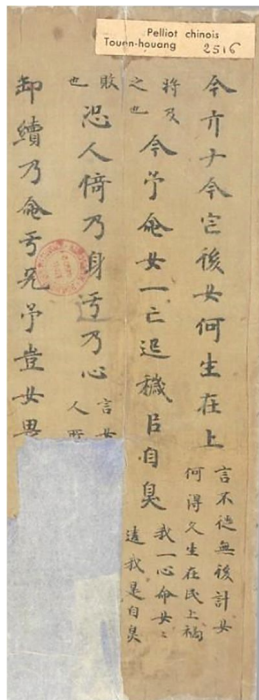 Pelliot chinois
Touen-houang 2516
今亓ナ今空後女何生在上
言不徙無後計女
何得久生在民上禍
將及
之也
今予命女一亡迟穢㠯自臭
我一心命女〻
違我是自臭
敗
也
恐人倚乃身迂乃心
言女
人
卸續乃命亐兂予豈女